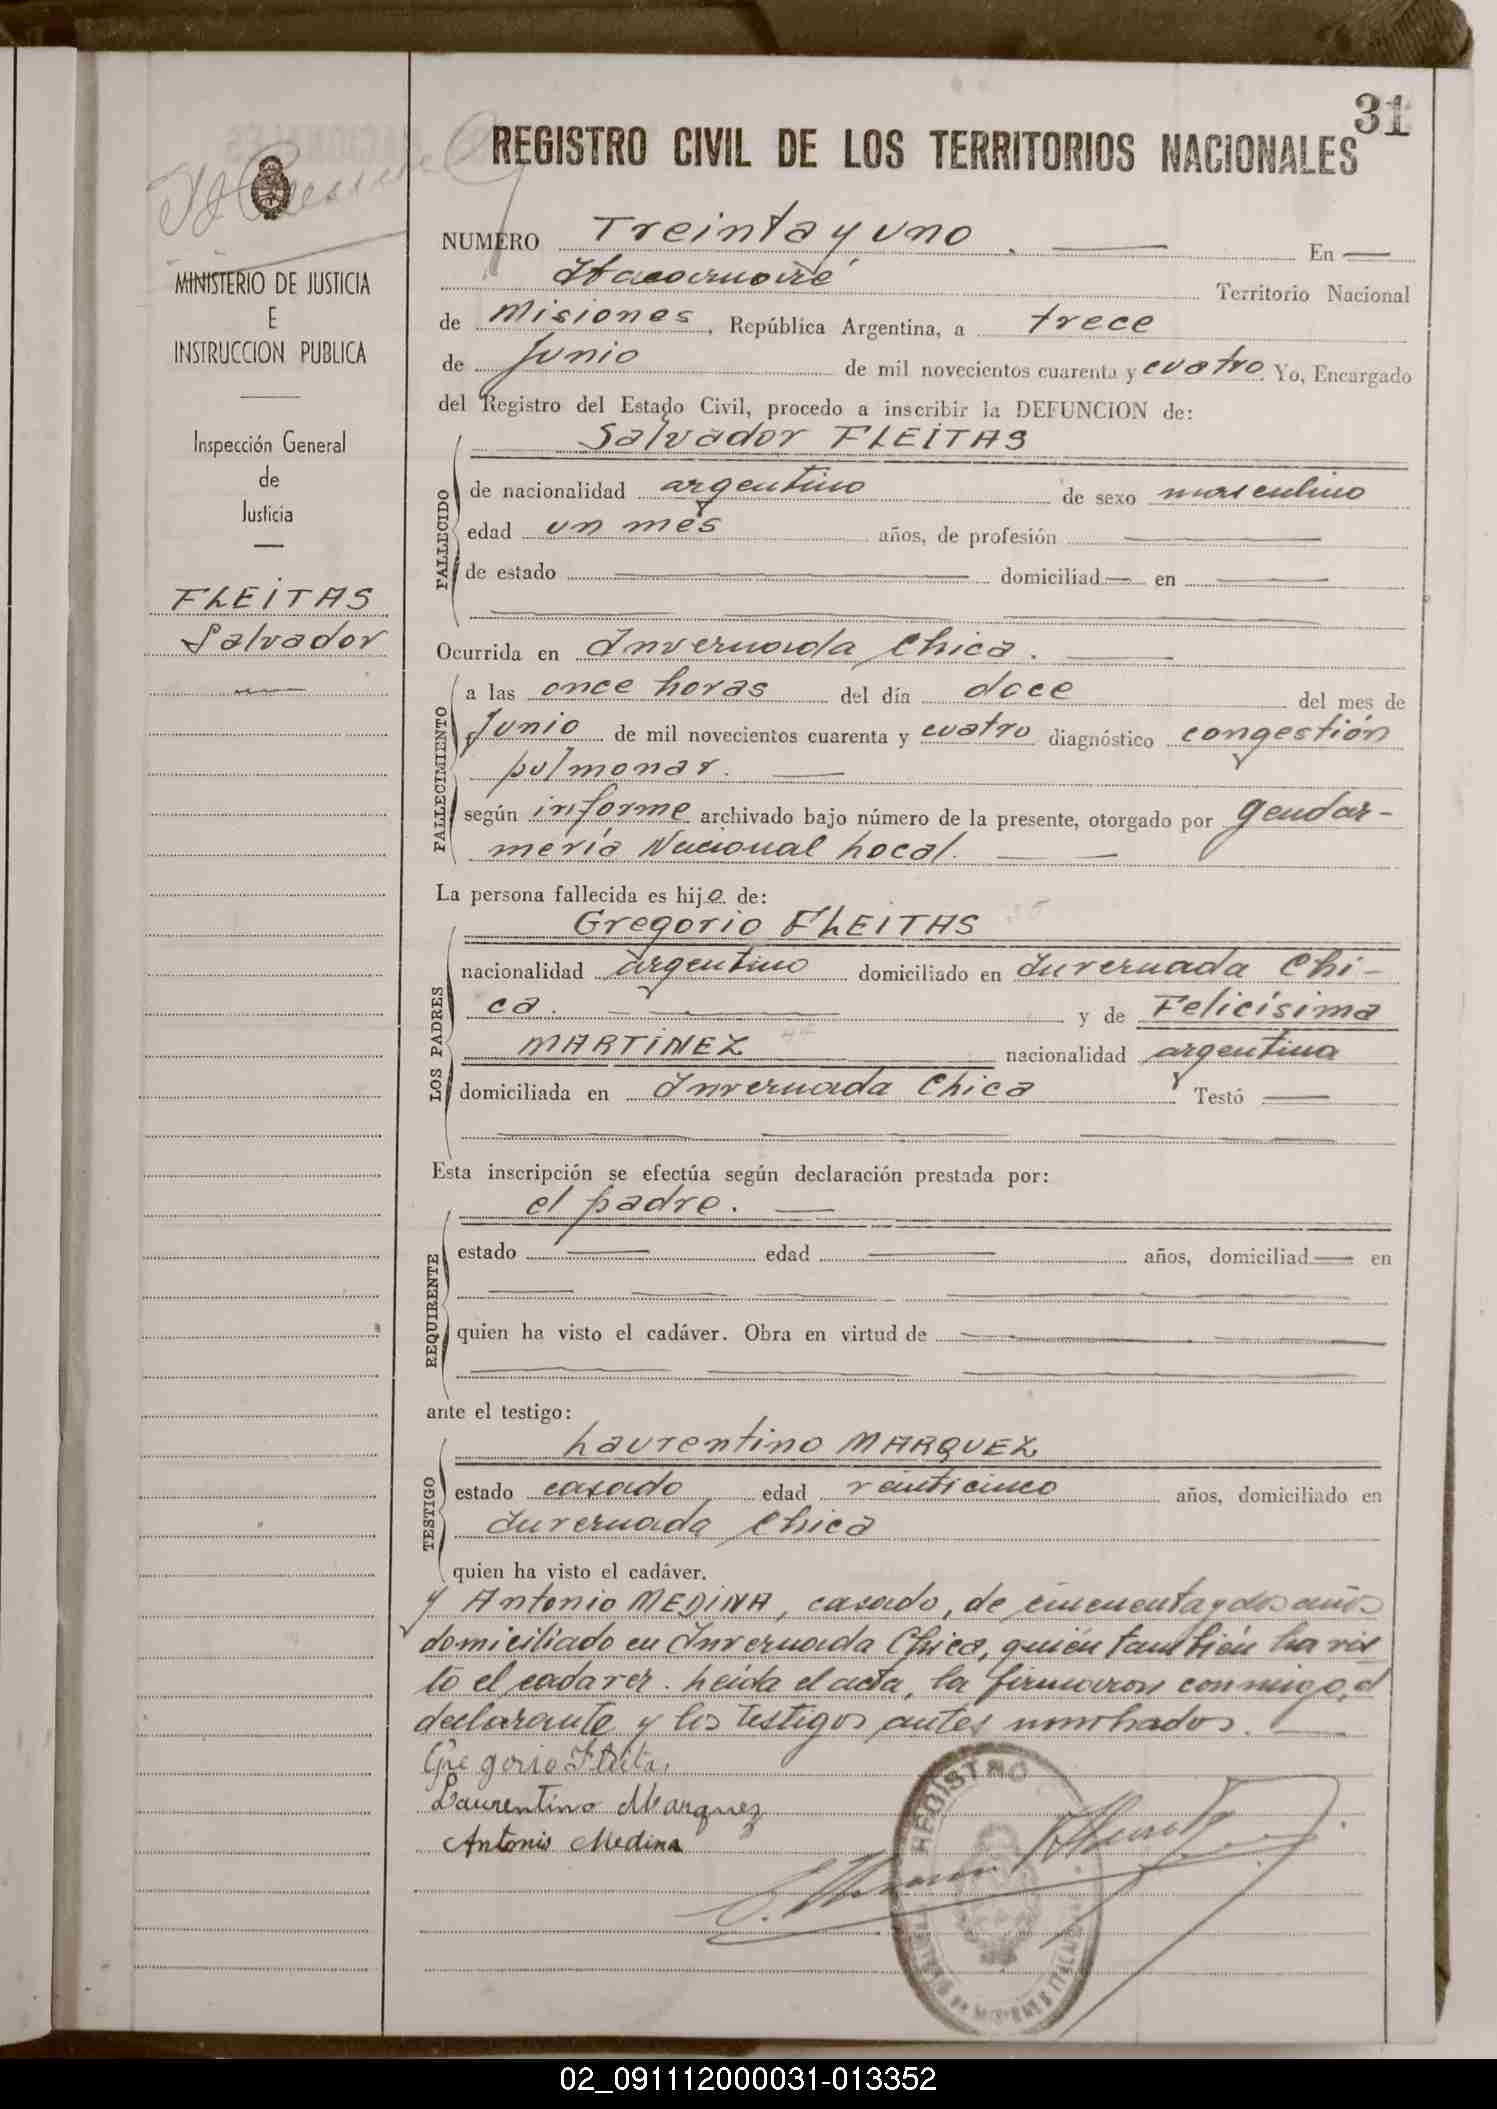 31
REGISTRO CIVIL DE LOS TERRITORIOS NACIONALES
MINISTERIO DE JUSTICIA
E
INSTRUCCION PUBLICA
Inspección General
de
Justicia
FLEITAS
Salvador
NUMERO Treinta y uno. — En —
Itacaruaré Territorio Nacional
de Misiones, República Argentina, a trece
de Junio de mil novecientos cuarenta y cuatro Yo, Encargado
del Registro del Estado Civil, procedo a inscribir la DEFUNCION de:
Salvador FLEITAS
FALLECIDO
de nacionalidad argentino de sexo masculino
edad un mes años, de profesión —
de estado — domiciliad — en —
Ocurrida en Invernada Chica. —
FALLECIMIENTO
a las once horas del día doce del mes de
Junio de mil novecientos cuarenta y cuatro diagnóstico congestión
pulmonar. —
según informe archivado bajo número de la presente, otorgado por gendar-
mería Nacional Local. — —
La persona fallecida es hijo de:
LOS PADRES
Gregorio FLEITAS
nacionalidad argentino domiciliado en Invernada Chi-
ca. — — y de Felicísima
MARTINEZ nacionalidad argentina
domiciliada en Invernada Chica Testó —
Esta inscripción se efectúa según declaración prestada por:
REQUIRENTE
el padre. —
estado — edad — años, domiciliad — en
quien ha visto el cadáver. Obra en virtud de —
ante el testigo:
TESTIGO
Laurentino MARQUEZ
estado casado edad veinticinco años, domiciliado en
Invernada Chica
quien ha visto el cadáver.
y Antonio MEDINA, casado, de cincuenta y dos años
domiciliado en Invernada Chica, quién también ha vis
to el cadaver. Leída el acta, la firmaron conmigo, el
declarante y los testigos antes nombrados. —
Gregorio Fleita
Laurentino Marquez
Antonio Medina
REGISTRO
02_091112000031-013352